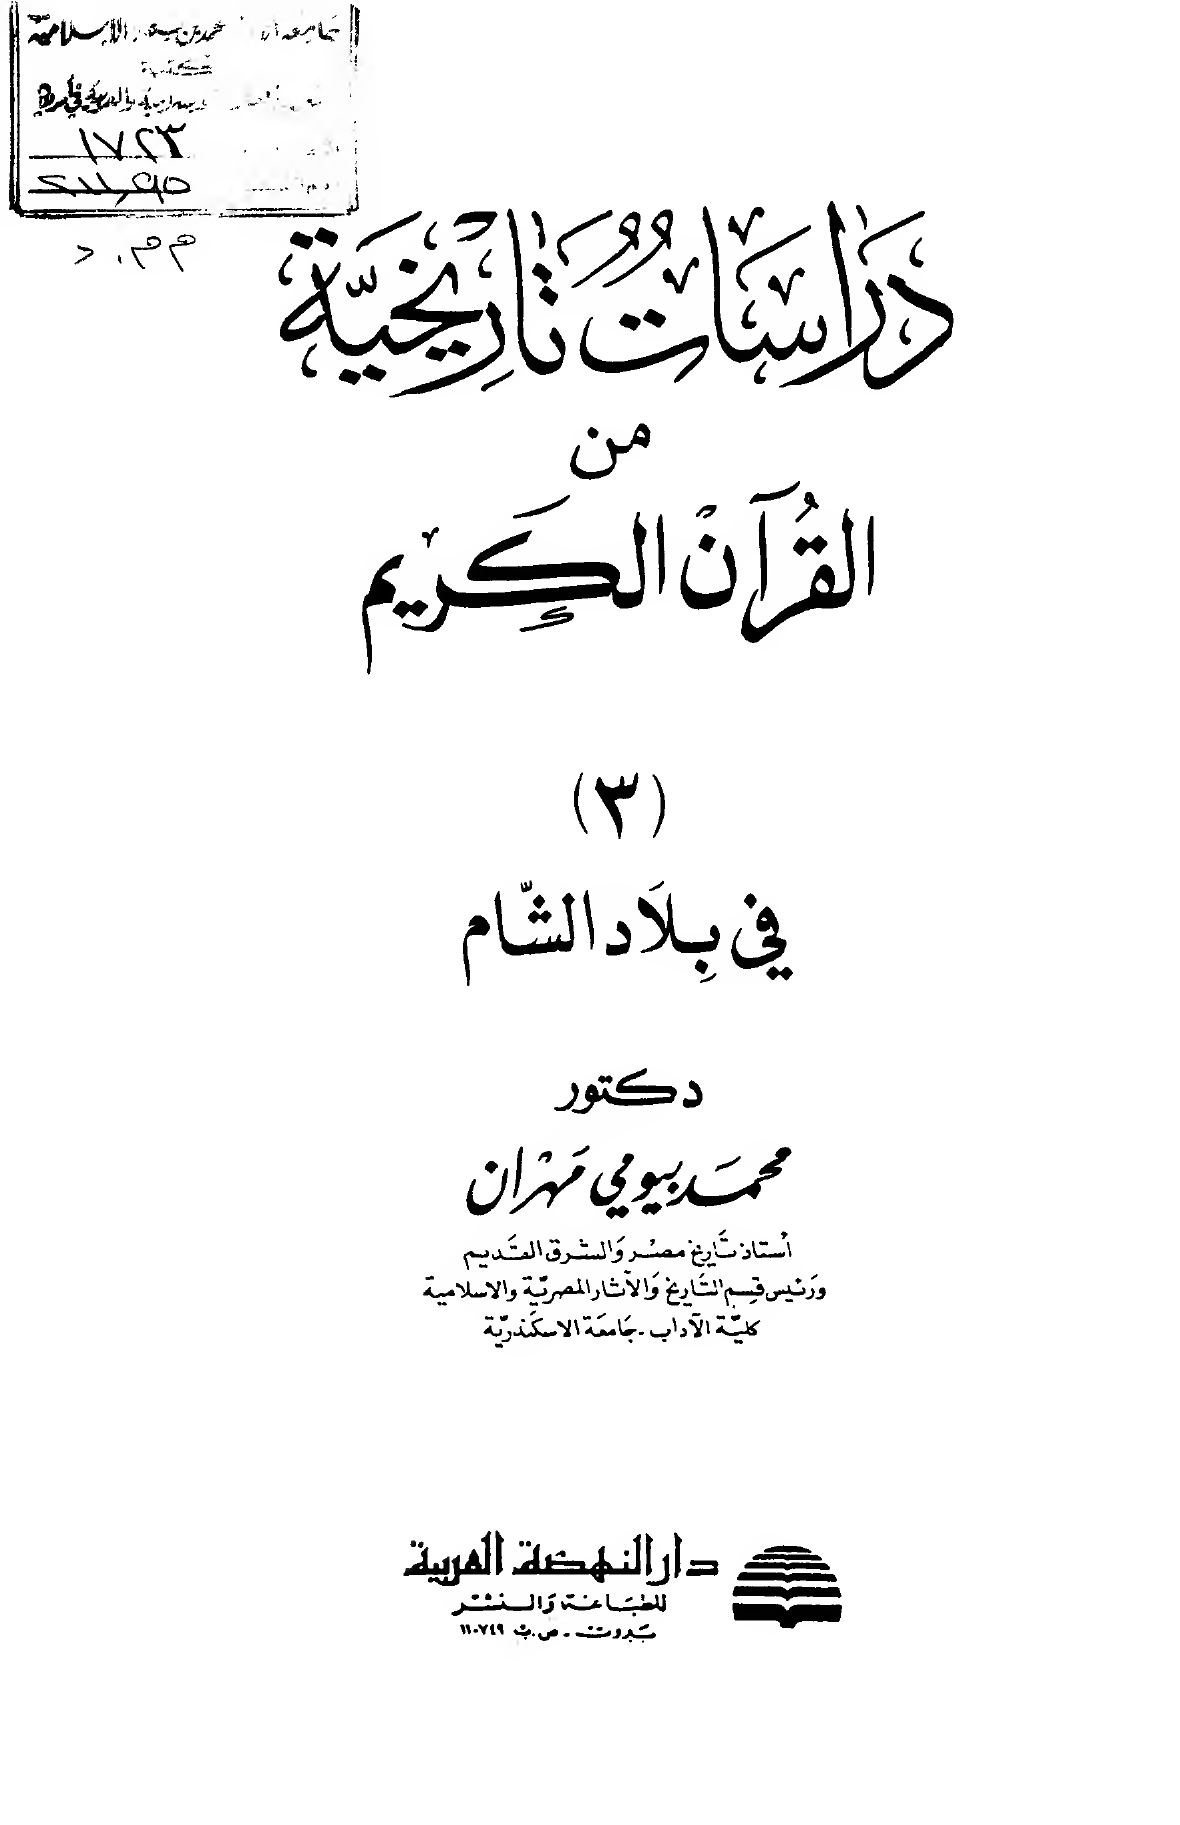 الإسلامية
١٧٢٣
دراسات تاريخية
من
القرآن الكريم
(٣)
في بلاد الشام
دكتور
محمد بيومي مهران
أستاذ تاريخ مصر والشرق القديم
ورئيس قسم التاريخ والآثار المصرية والاسلامية
كلية الآداب - جامعة الاسكندرية
دار النهضة العربية
للطباعة والنشر
بيروت - ص.ب ١١٠٧٤٩